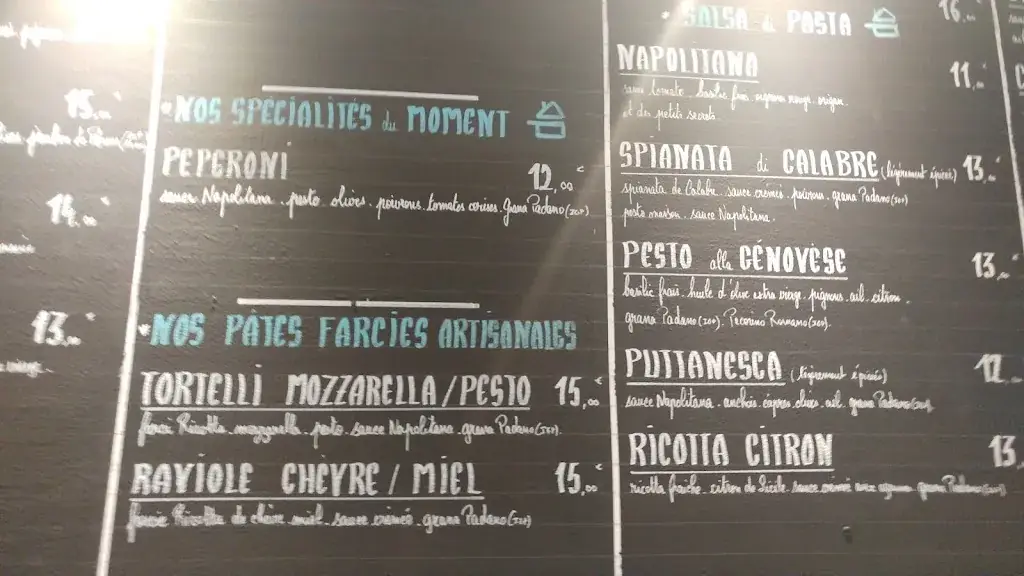 15,
14,00
13,00
NOS SPECIALITÉS du MOMENT
PEPERONI 12,00€
sauce Napolitana . pesto . olives . poivrons . tomates cerises . Grana Padano (IGP)
NOS PÂTES FARCIES ARTISANALES
TORTELLI MOZZARELLA/PESTO 15,00€
farcie Ricotta . mozzarella . pesto . sauce Napolitana . grana Padano
RAVIOLE CHÈVRE / MIEL 15,00€
farcie Ricotta de chèvre . miel . sauce crémée . grana Padano
SALSA & PASTA 16,
NAPOLITANA 11,
tomate . basilic frais . oignon rouge . origan .
et des petits secrets.
SPIANATA di CALABRE (légèrement épicée) 13,
spianata de Calabre . sauce crémée . poivrons . grana Padano
pesto maison . sauce Napolitana.
PESTO alla GÉNOVÈSE 13,
basilic frais . huile d'olive extra vierge . pignons . ail . citron .
grana Padano . Pecorino Romano
PUTTANESCA (légèrement épicée) 12,
sauce Napolitana . anchois . câpres . olives . ail . grana Padano
RICOTTA CITRON 13
ricotta fraîche . citron de Sicile . sauce crémée aux agrumes . grana Padano